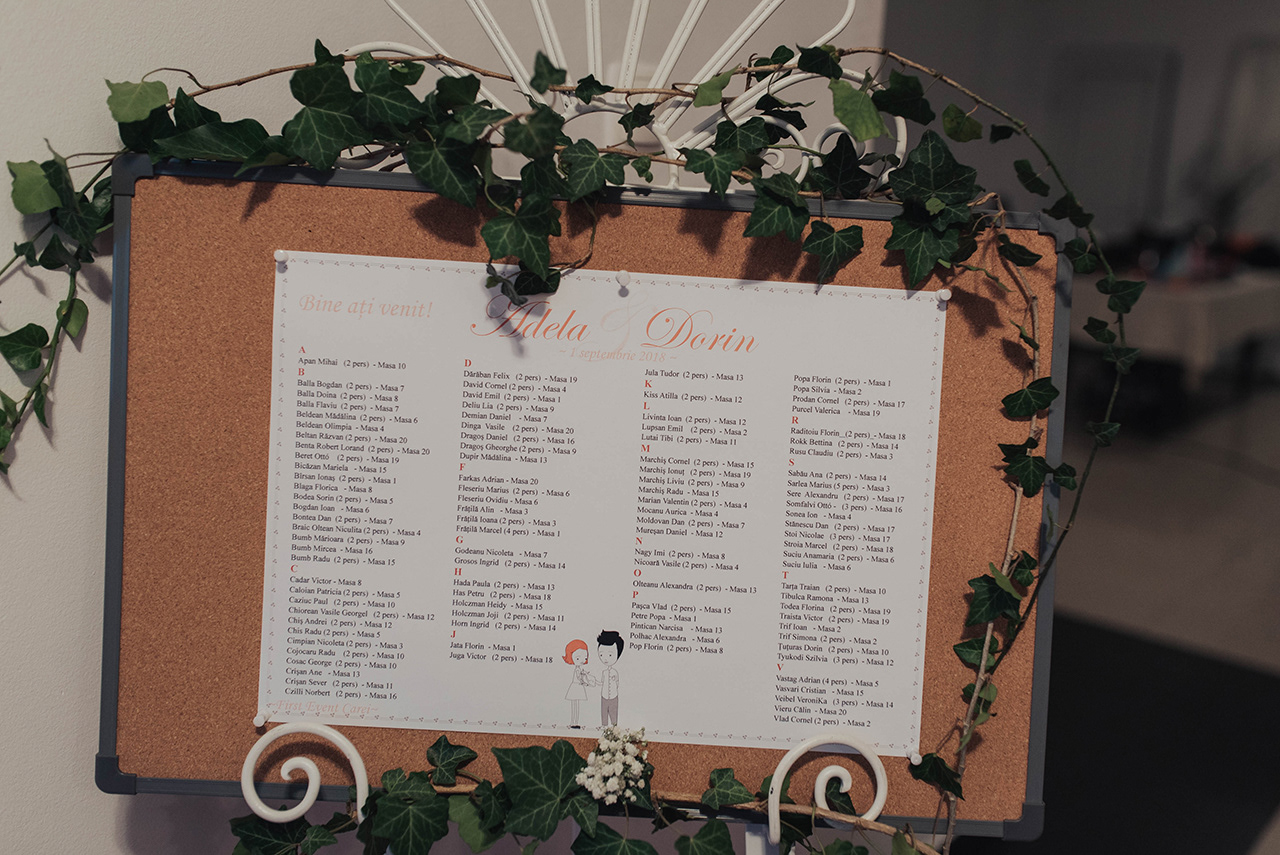 Bine ați venit!
Adela & Dorin
~ 1 septembrie 2018 ~
A
Apan Mihai (2 pers) - Masa 10
B
Balla Bogdan (2 pers) - Masa 7
Balla Doina (2 pers) - Masa 8
Balla Flaviu (2 pers) - Masa 7
Beldean Mădălina (2 pers) - Masa 6
Beldean Olimpia - Masa 4
Beltan Răzvan (2 pers) - Masa 20
Benta Robert Lorand (2 pers) - Masa 20
Beret Ottó (2 pers) - Masa 19
Bicăzan Mariela - Masa 15
Bîrsan Ionaș (2 pers) - Masa 1
Blaga Florica - Masa 8
Bodea Sorin (2 pers) - Masa 5
Bogdan Ioan - Masa 6
Bontea Dan (2 pers) - Masa 7
Braic Oltean Niculita (2 pers) - Masa 4
Bumb Mărioara (2 pers) - Masa 9
Bumb Mircea - Masa 16
Bumb Radu (2 pers) - Masa 15
C
Cadar Victor - Masa 8
Caloian Patricia (2 pers) - Masa 5
Caziuc Paul (2 pers) - Masa 10
Chiorean Vasile Georgel (2 pers) - Masa 12
Chiș Andrei (2 pers) - Masa 12
Chis Radu (2 pers) - Masa 5
Cimpian Nicoleta (2 pers) - Masa 3
Cojocaru Radu (2 pers) - Masa 10
Cosac George (2 pers) - Masa 10
Crișan Ane - Masa 13
Crișan Sever (2 pers) - Masa 11
Czilli Norbert (2 pers) - Masa 16
~First Event Carei~
D
Dărăban Felix (2 pers) - Masa 19
David Cornel (2 pers) - Masa 4
David Emil (2 pers) - Masa 1
Deliu Lia (2 pers) - Masa 9
Demian Daniel - Masa 7
Dinga Vasile (2 pers) - Masa 20
Dragoș Daniel (2 pers) - Masa 16
Dragoș Gheorghe (2 pers) - Masa 9
Dupir Mădălina - Masa 13
F
Farkas Adrian - Masa 20
Fleseriu Marius (2 pers) - Masa 6
Fleseriu Ovidiu - Masa 6
Frățilă Alin - Masa 3
Frățilă Ioana (2 pers) - Masa 3
Frățilă Marcel (4 pers) - Masa 1
G
Godeanu Nicoleta - Masa 7
Grosos Ingrid (2 pers) - Masa 14
H
Hada Paula (2 pers) - Masa 13
Has Petru (2 pers) - Masa 18
Holczman Heidy - Masa 15
Holczman Joji (2 pers) - Masa 11
Horn Ingrid (2 pers) - Masa 14
J
Jata Florin - Masa 1
Juga Victor (2 pers) - Masa 18
Jula Tudor (2 pers) - Masa 13
K
Kiss Atilla (2 pers) - Masa 12
L
Livinta Ioan (2 pers) - Masa 12
Lupsan Emil (2 pers) - Masa 2
Lutai Tibi (2 pers) - Masa 11
M
Marchiș Cornel (2 pers) - Masa 15
Marchiș Ionuț (2 pers) - Masa 19
Marchiș Liviu (2 pers) - Masa 9
Marchiș Radu - Masa 15
Marian Valentin (2 pers) - Masa 4
Mocanu Aurica - Masa 4
Moldovan Dan (2 pers) - Masa 7
Mureșan Daniel - Masa 12
N
Nagy Imi (2 pers) - Masa 8
Nicoară Vasile (2 pers) - Masa 4
O
Olteanu Alexandra (2 pers) - Masa 13
P
Pașca Vlad (2 pers) - Masa 15
Petre Popa - Masa 1
Pintican Narcisa - Masa 13
Polhac Alexandra - Masa 6
Pop Florin (2 pers) - Masa 8
Popa Florin (2 pers) - Masa 1
Popa Silvia - Masa 2
Prodan Cornel (2 pers) - Masa 17
Purcel Valerica - Masa 19
R
Raditoiu Florin (2 pers) - Masa 18
Rokk Bettina (2 pers) - Masa 14
Rusu Claudiu (2 pers) - Masa 3
S
Sabău Ana (2 pers) - Masa 14
Sarlea Marius (5 pers) - Masa 3
Sere Alexandru (2 pers) - Masa 17
Somfalvi Ottó - (3 pers) - Masa 16
Sonea Ion - Masa 4
Stănescu Dan (2 pers) - Masa 17
Stoi Nicolae (3 pers) - Masa 17
Stroia Marcel (2 pers) - Masa 18
Suciu Anamaria (2 pers) - Masa 6
Suciu Iulia - Masa 6
T
Tarța Traian (2 pers) - Masa 10
Tibulca Ramona - Masa 13
Todea Florina (2 pers) - Masa 19
Traista Victor (2 pers) - Masa 19
Trif Ioan - Masa 2
Trif Simona (2 pers) - Masa 2
Tuțuras Dorin (2 pers) - Masa 10
Tyukodi Szilvia (3 pers) - Masa 12
V
Vastag Adrian (4 pers) - Masa 5
Vasvari Cristian - Masa 15
Veibel VeroniKa (3 pers) - Masa 14
Vieru Călin - Masa 20
Vlad Cornel (2 pers) - Masa 2